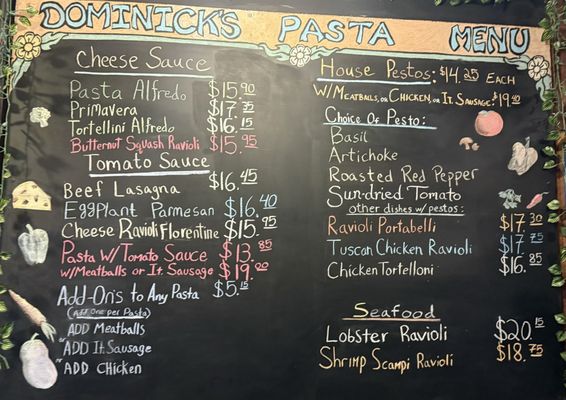 DOMINICK'S PASTA MENU
Cheese Sauce
Pasta Alfredo $15.90
Primavera $17.75
Tortellini Alfredo $16.15
Butternut Squash Ravioli $15.95
Tomato Sauce
Beef Lasagna $16.45
Eggplant Parmesan $16.40
Cheese Ravioli Florentine $15.95
Pasta w/ Tomato Sauce $13.85
w/Meatballs or It. Sausage $19.00
Add-On's to Any Pasta $5.15
(Add One per Pasta)
ADD Meatballs
or ADD It. Sausage
or ADD Chicken
House Pestos: $14.25 EACH
w/Meatballs, or Chicken, or It. Sausage: $19.40
Choice Of Pesto:
Basil
Artichoke
Roasted Red Pepper
Sun-dried Tomato
other dishes w/ pestos:
Ravioli Portabelli $17.30
Tuscan Chicken Ravioli $17.75
Chicken Tortelloni $16.85
Seafood
Lobster Ravioli $20.15
Shrimp Scampi Ravioli $18.75